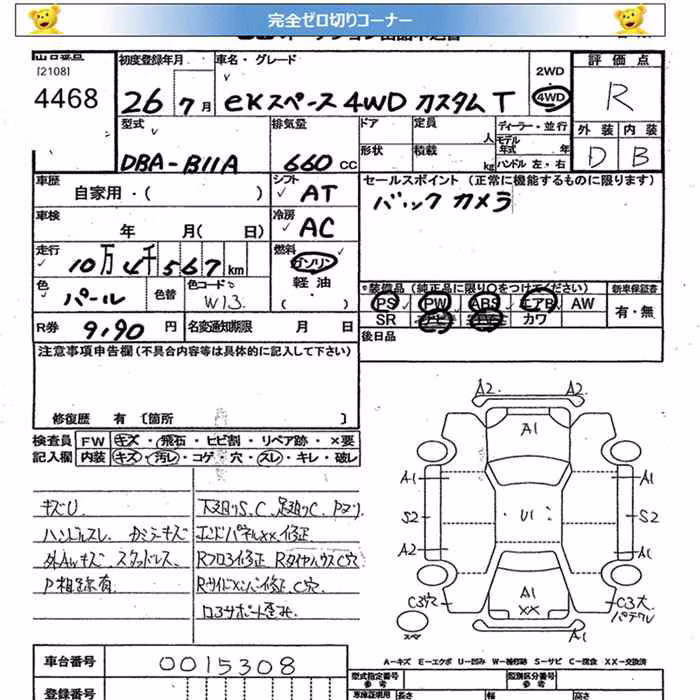 完全ゼロ切りコーナー
[2108]
4468
初度登録年月
26年7月
車名・グレード
eKスペース 4WD カスタム T
2WD
4WD
評価点
R
外装 内装
D B
型式
DBA-B11A
排気量
660 CC
ドア
定員
人
形状
積載
kg
ディーラー・並行
モデル年式 年
ハンドル 左・右
車歴
自家用・( )
シフト
AT
セールスポイント (正常に機能するものに限ります)
バックカメラ
車検
年 月( 日)
冷房
AC
走行
10万4千567km
燃料
ガソリン
軽油
・( )
色
パール
色替
色コードNo
W13
装備品(純正品に限り○をつけてください)
新車保証書
PS PW ABS エアB AW
SR ナビ カワ
有・無
R券
9,190 円
名変通知期限 月 日
後日品
注意事項申告欄(不具合内容等は具体的に記入して下さい)
修復歴 有〔箇所 〕
検査員記入欄
FW キズ・飛石・ヒビ割・リペア跡・×要
内装 キズ・汚レ・コゲ・穴・スレ・キレ・破レ
キズU
ハンドルスレ
外AWキズ スタッドレス
下廻りS、C
エンドパネルXX修正
A2 A2
A1
A1 A1
S2 U1 S2
A2 A1
A1
XX
C3穴 C3大
スペア
A1
A-キズ E-エクボ U-凹み W-補修跡 S-サビ C-腐食 XX-交換済
車台番号
0015308
登録番号
型式指定番号
参考
類別区分番号
参考
車庫証明用
長さ 幅 高さ